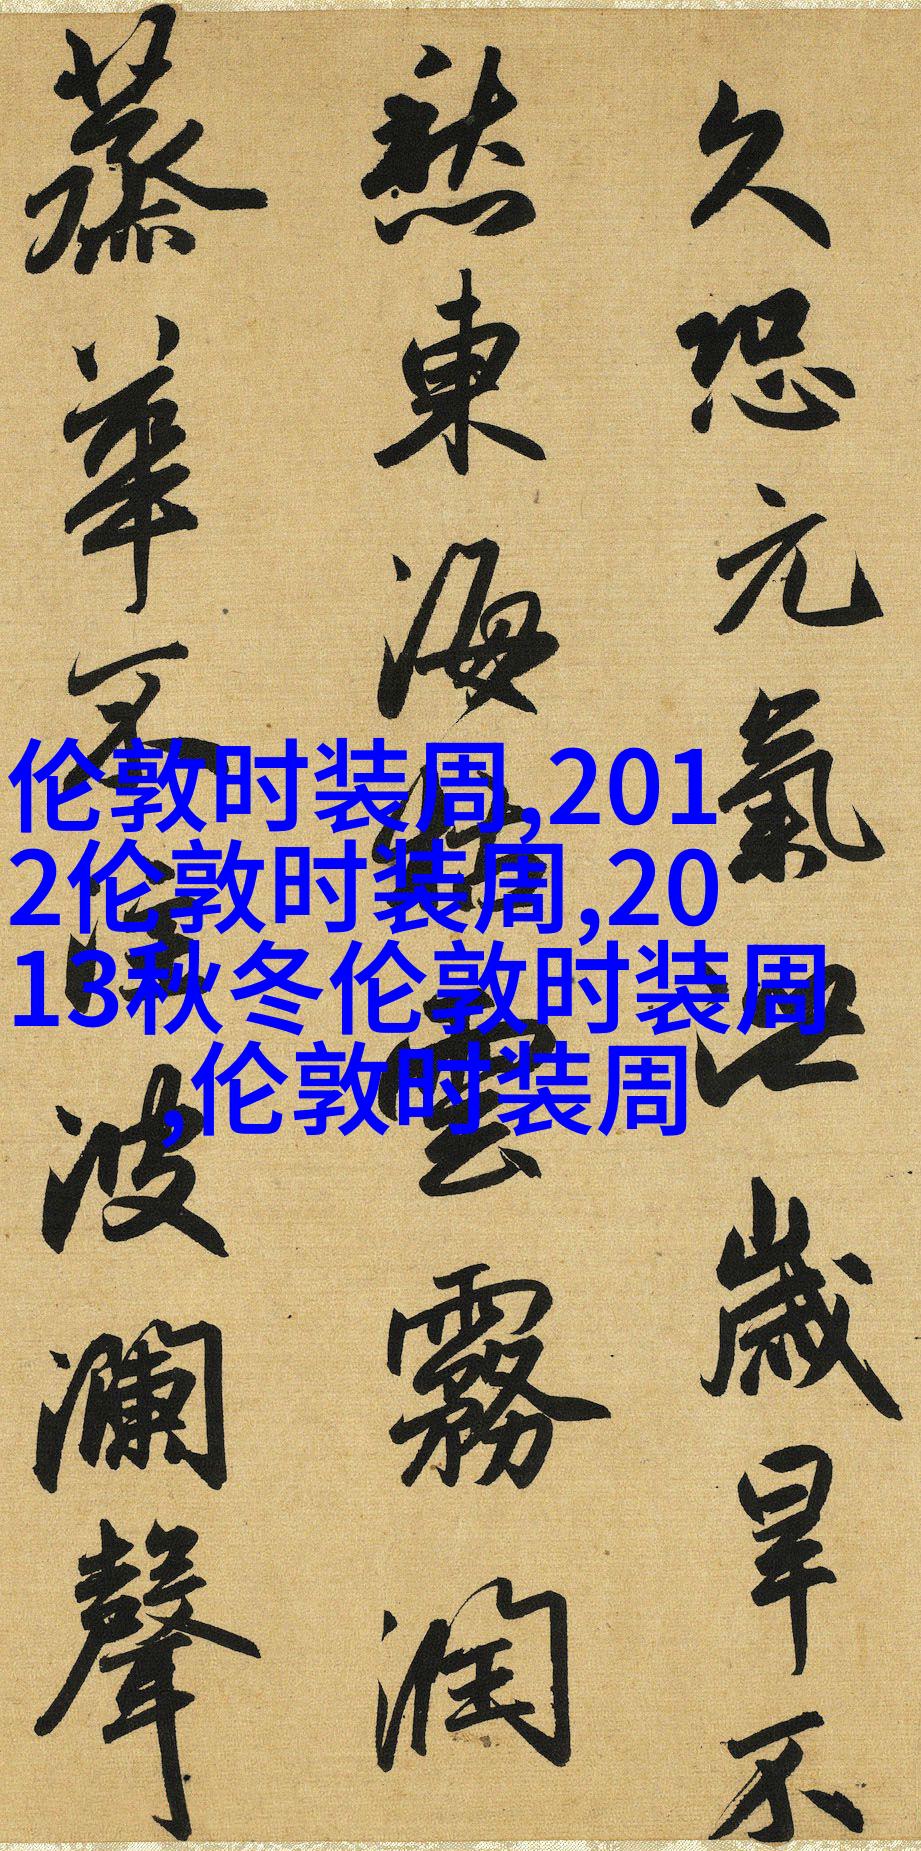 伦敦时装周,201
2伦敦时装周,20
13秋冬伦敦时装周
,伦敦时装周
久恐元氣泄歲旱不
愁東海枯雲霧潤
蒸華不注波瀾聲